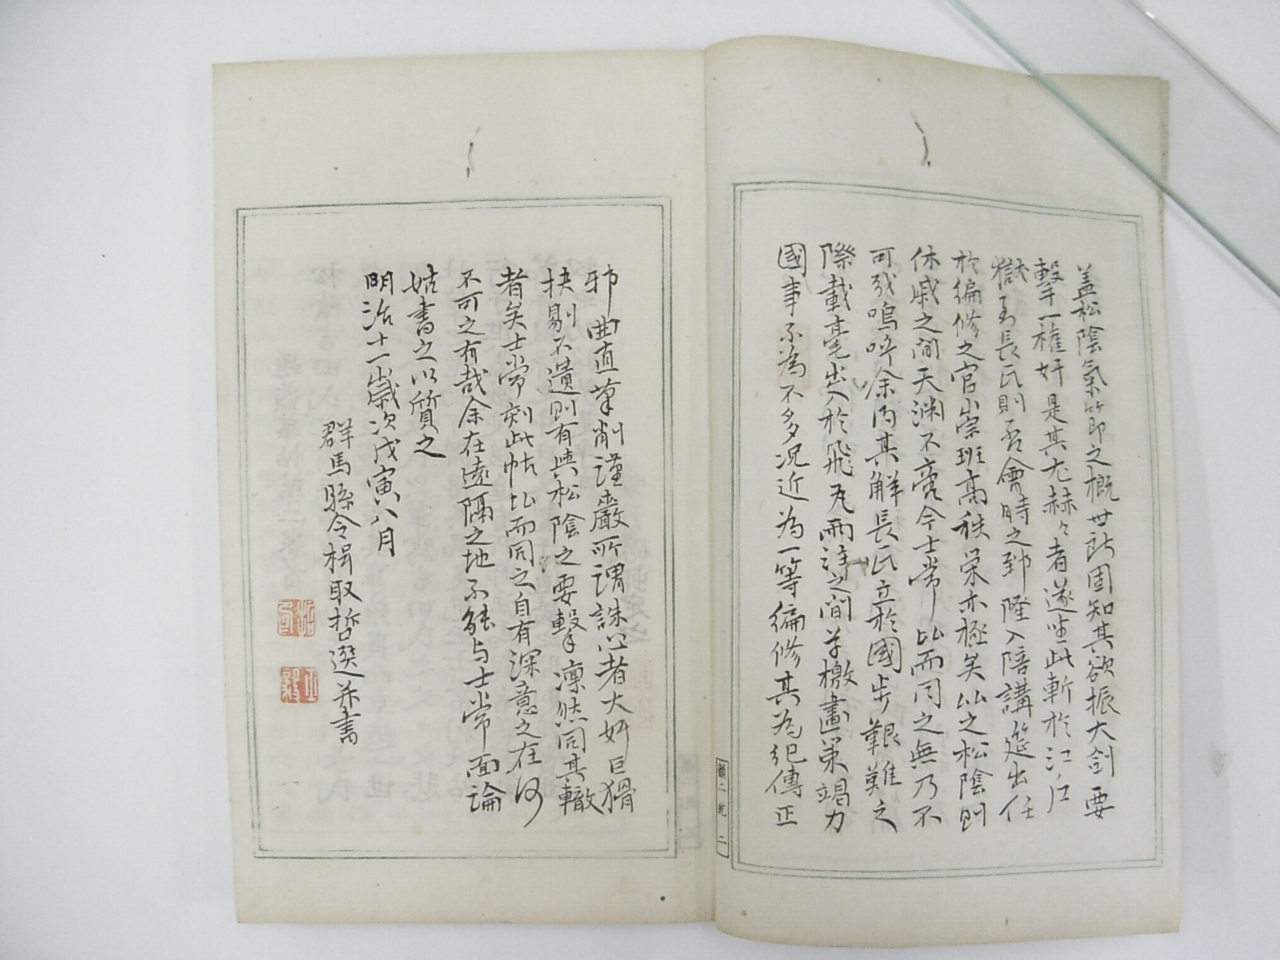 蓋松陰氣節之概世所固知其欲振大剣要
撃一権奸是其尤赫々者遂坐此斬於江戸
獄若長氏則否會時之到陞入陪講筵出任
於編修之官崇班高秩栄亦極矣以之松陰則
休戚之間天淵不啻今士常比而同之無乃不
可哉嗚呼余有其解長氏立於國歩艱難之
際載毫出入於飛丸雨注之間草檄畫策竭力
國事不為不多況近為一等編修其為紀傳正
邪曲直筆削謹嚴所謂誅心者大奸巨猾
抉剔不遺則有與松陰之要撃凛然同其轍
者矣士常刻此帖比而同之自有深意之在何
不可之有哉余在遠隔之地不能与士常面論
姑書之以質之
明治十一歳次戊寅八月
群馬縣令楫取哲選并書